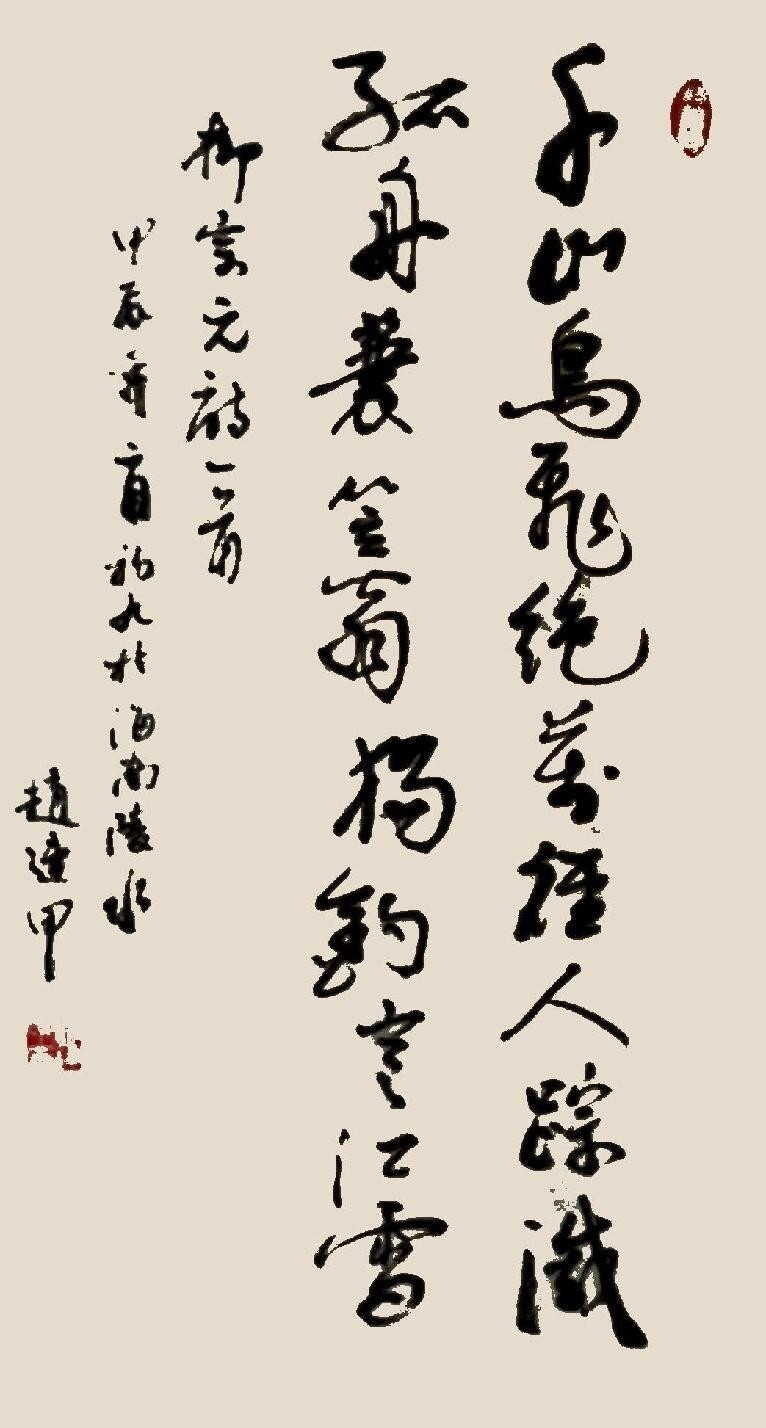 千山鳥飛絕萬徑人踪滅
孤舟蓑笠翁獨釣寒江雪
柳宗元詩一首
甲辰初九於海南陵水
趙連甲